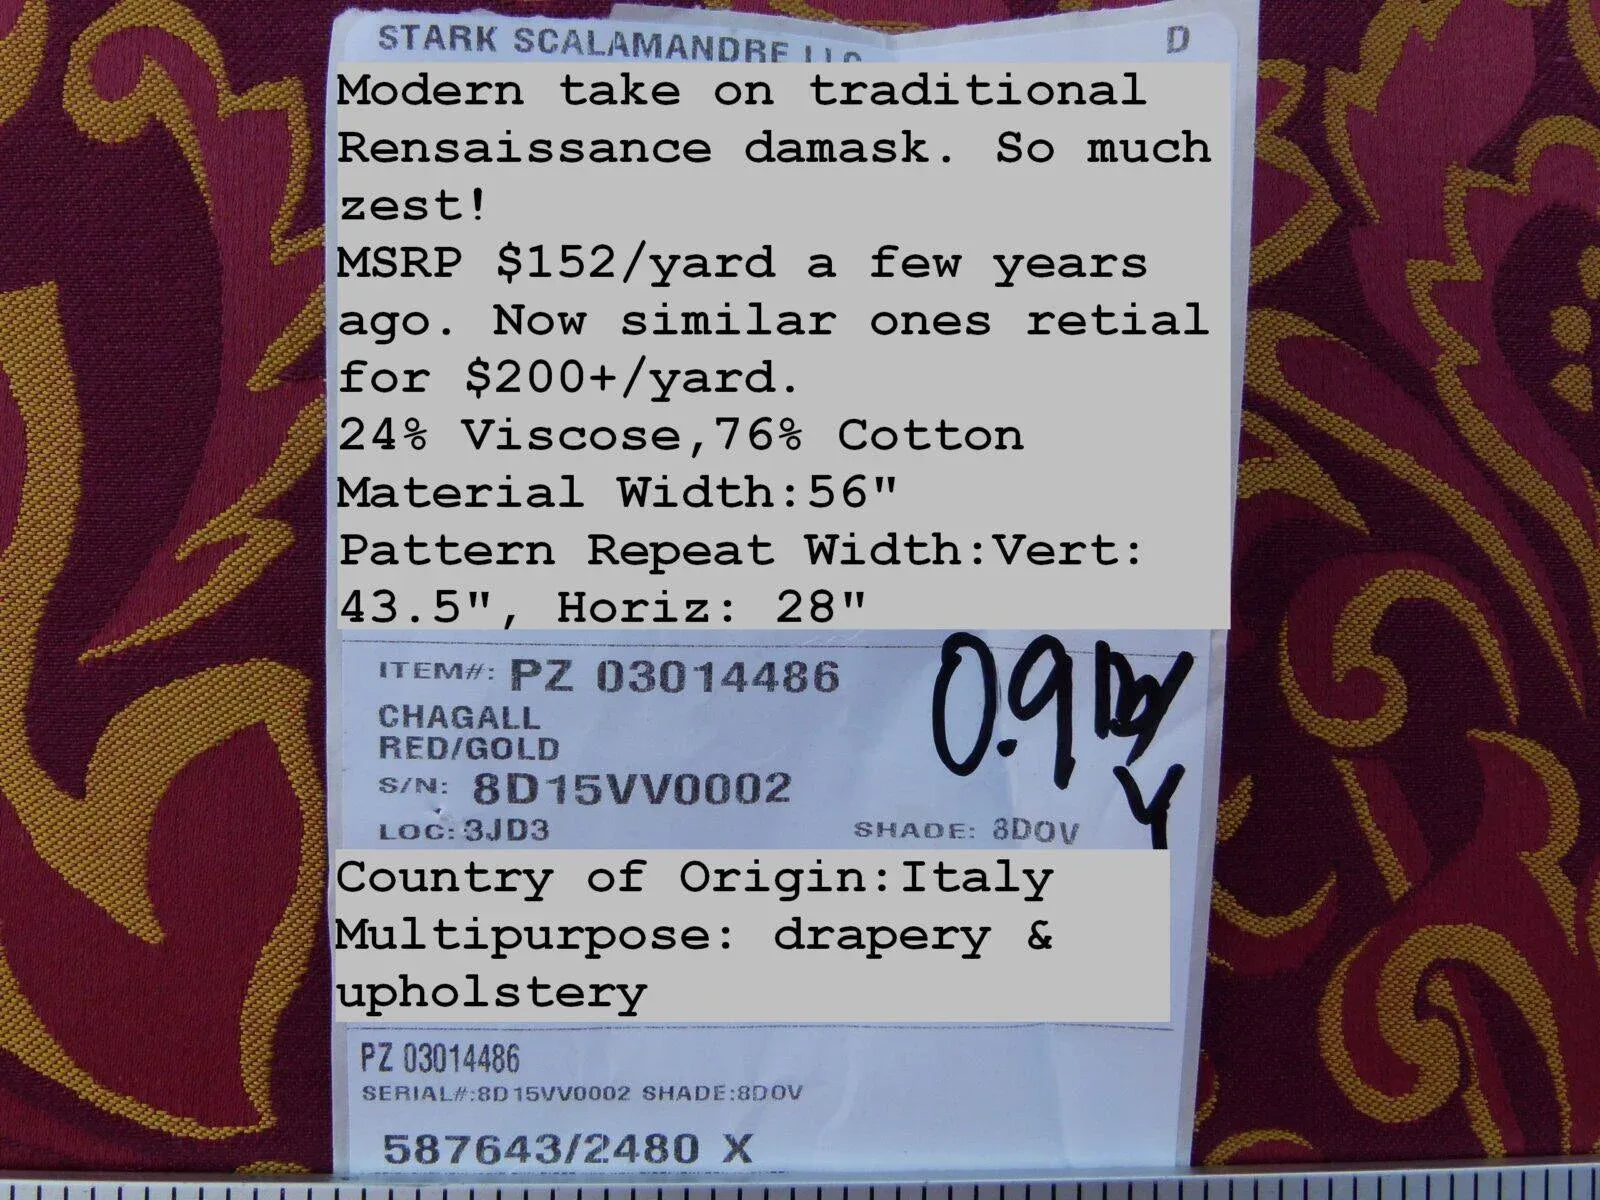 STARK SCALAMANDRE LLC
D
Modern take on traditional
Rensaissance damask. So much
zest!
MSRP $152/yard a few years
ago. Now similar ones retial
for $200+/yard.
24% Viscose,76% Cotton
Material Width:56"
Pattern Repeat Width:Vert:
43.5", Horiz: 28"
ITEM#: PZ 03014486
0.9
CHAGALL
RED/GOLD
S/N: 8D15VV0002
Y
LOC: 3JD3 SHADE: 8D0V
Country of Origin:Italy
Multipurpose: drapery &
upholstery
PZ 03014486
SERIAL#:8D15VV0002 SHADE:8D0V
587643/2480 X